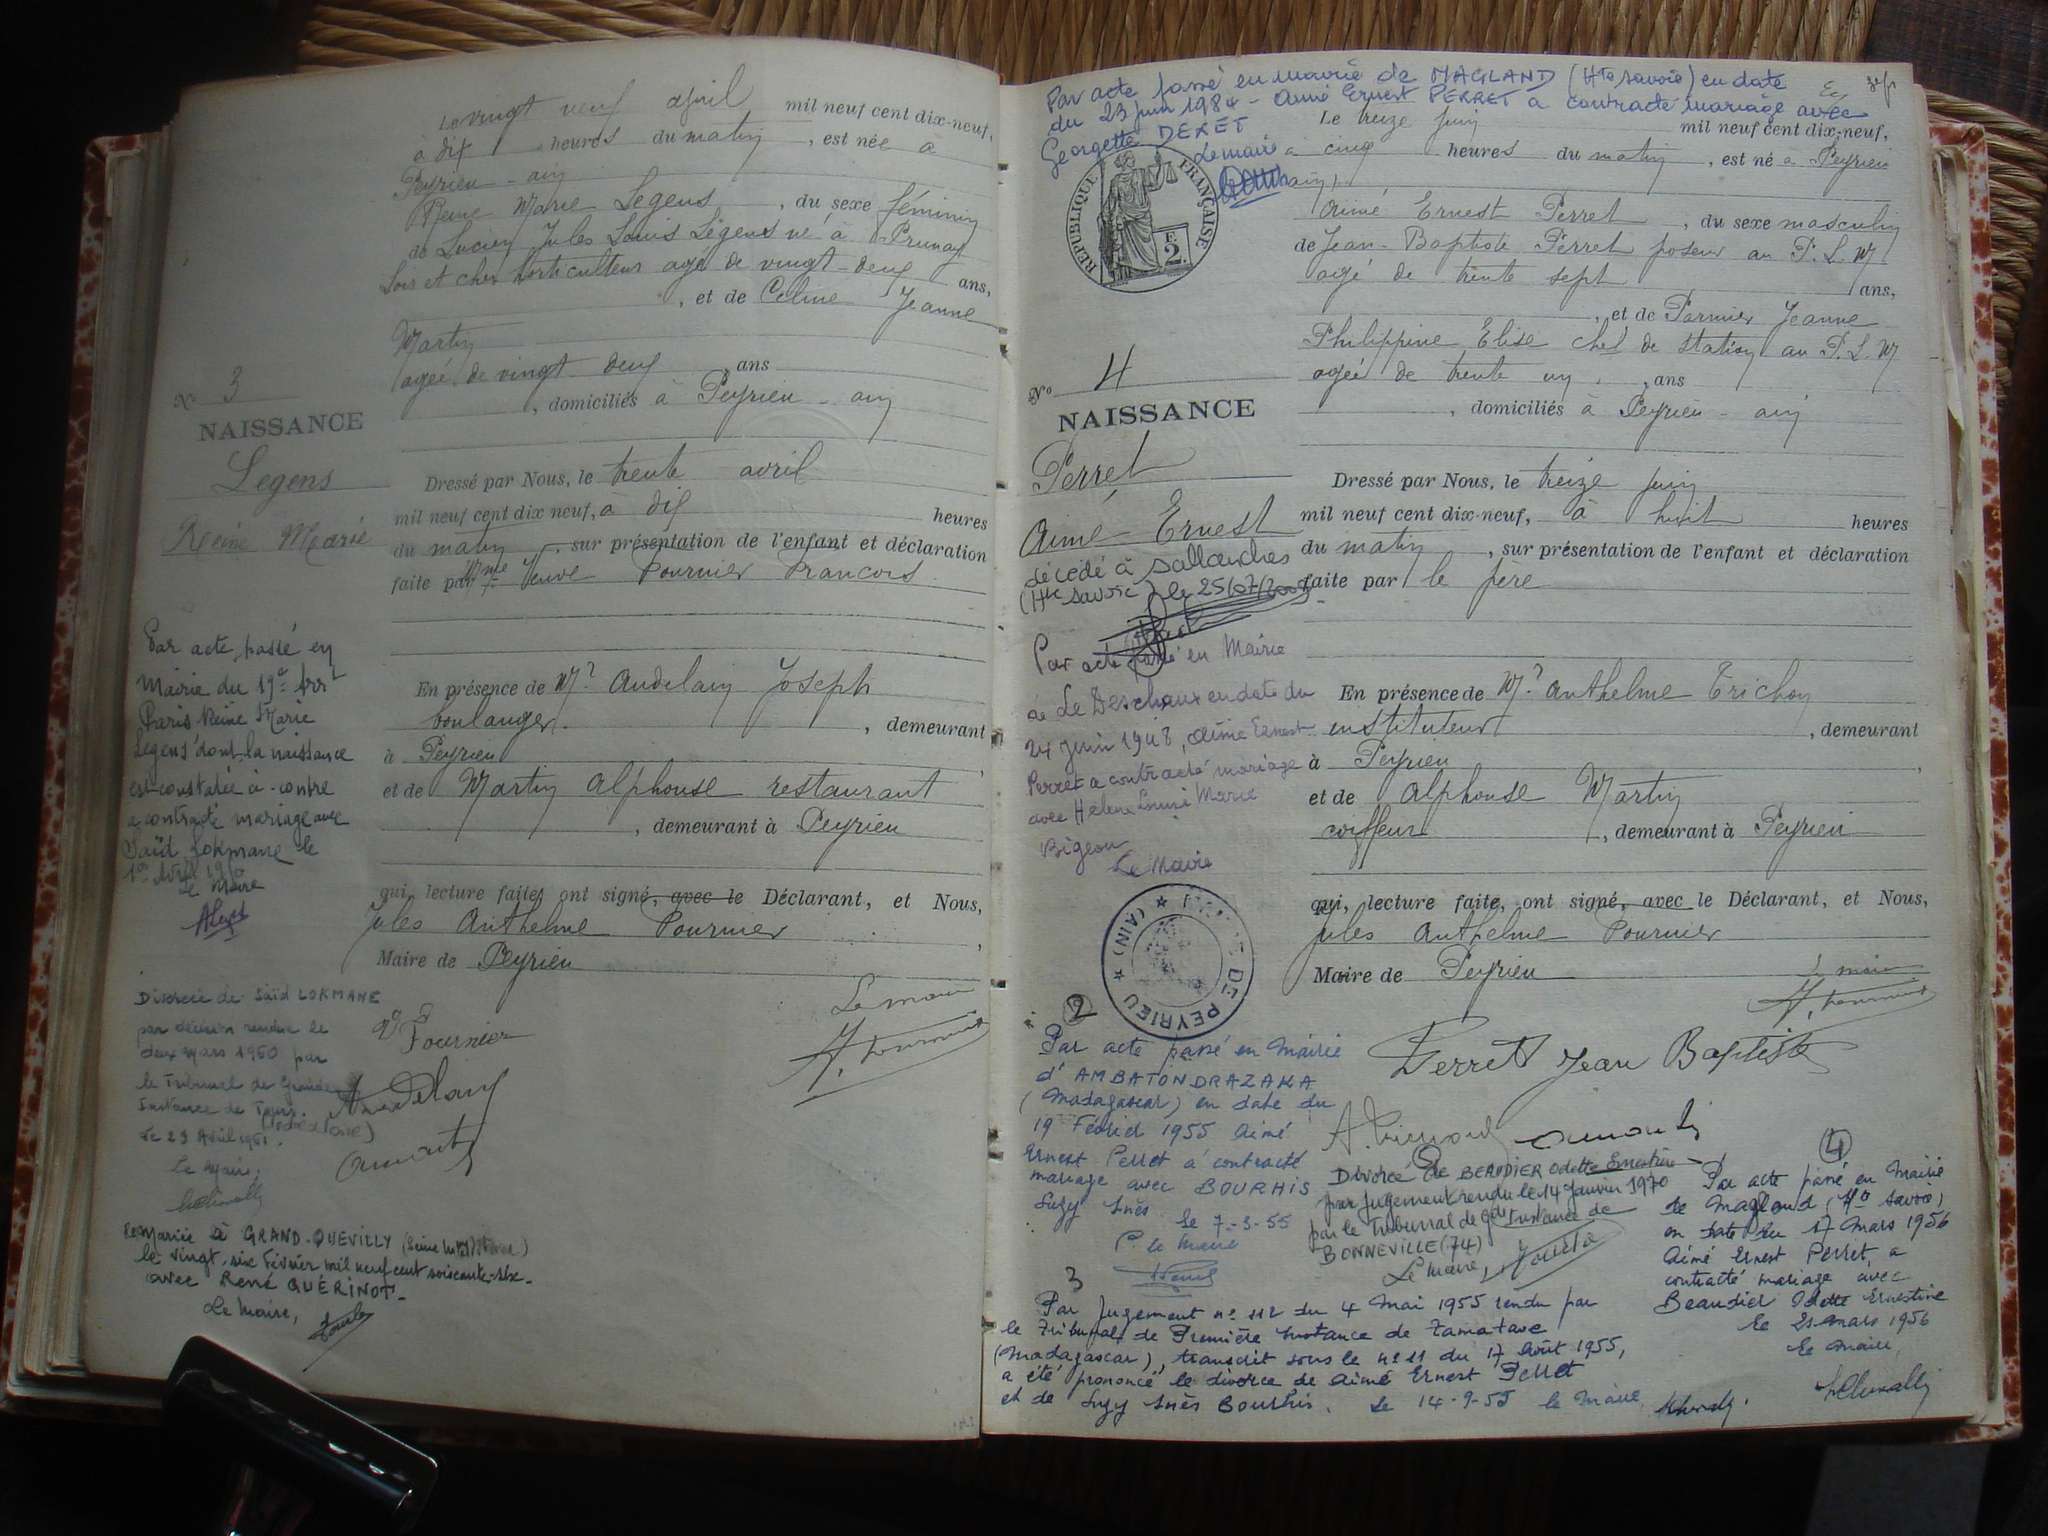 Le vingt neuf avril mil neuf cent dix-neuf,
à dix heures du matin, est née à
Peyrieu - ain
Reine Marie Legens, du sexe féminin
de Lucien Jules Louis Légens né à Prunay
Loir et cher horticulteur agé de vingt-deux ans,
, et de Celine Jeanne
Martin
agée de vingt deux ans
, domiciliés à Peyrieu - ain
No 3
NAISSANCE
Legens
Reine Marie
Dressé par Nous, le trente avril
mil neuf cent dix neuf, à dix heures
du matin, sur présentation de l'enfant et déclaration
faite par Mme Veuve Fournier Francois
En présence de Mr Andelain Joseph
boulanger, demeurant
à Peyrieu,
et de Martin Alphonse restaurant
, demeurant à Peyrieu
qui, lecture faite, ont signé, avec le Déclarant, et Nous,
Jules Anthelme Fournier,
Maire de Peyrieu
Le maire
Ve Fournier
A. Fournier
Par acte passé en
Mairie du 19e Arrt
Paris Reine Marie
Legens dont la naissance
est constatée ci-contre
a contracté mariage avec
Saïd Lokmane le
1er Avril
Le Maire
Divorcée de Saïd LOKMANE
par décision rendue le
deux mars 1960 par
le Tribunal de Grande
Instance de Tours.
(Indre et Loire)
Le 29 Avril 1961.
Le Maire,
Remariée à GRAND-QUEVILLY (Seine Mme)
le vingt six Février mil neuf cent soixante-six
avec René QUÉRINOT-
Le Maire,
Par acte passé en mairie de MAGLAND (Hte Savoie) en date
du 23 juin 1984 - Aimé Ernest PERRET a contracté mariage avec
Georgette DERET
Le maire
RÉPUBLIQUE FRANÇAISE
F. 2
Le treize juin mil neuf cent dix-neuf,
à cinq heures du matin, est né à Peyrieu
(ain)
Aimé Ernest Perret, du sexe masculin
de Jean-Baptiste Perret poseur au P.L.M
agé de trente sept ans,
, et de Parnier Jeanne
Philippine Elise chef de station au P.L.M
agée de trente un, ans
, domiciliés à Peyrieu - ain
No 4
NAISSANCE
Perret
Aimé Ernest
décédé à Sallanches
(Hte Savoie) le 25/07/
Dressé par Nous, le treize juin
mil neuf cent dix-neuf, à huit heures
du matin, sur présentation de l'enfant et déclaration
faite par le père
En présence de Mr Anthelme Trichon
instituteur, demeurant
à Peyrieu,
et de Alphonse Martin
coiffeur, demeurant à Peyrieu
qui, lecture faite, ont signé, avec le Déclarant, et Nous,
Jules Anthelme Fournier
Maire de Peyrieu
maire
A. Fournier
Perret Jean Baptiste
Par acte passé en Mairie
de Le Deschaux en date du
24 juin 1948, Aimé Ernest
Perret a contracté mariage
avec Hélène Marie
Bigeon
Le Maire
DE PEYRIEU (AIN)
2
Par acte passé en Mairie
d'AMBATONDRAZAKA
(Madagascar) en date du
19 Février 1955 Aimé
Ernest Perret a contracté
mariage avec BOURHIS
Suzy Inès. Le 7-3-55
P. le Maire
3
Par jugement no 112 du 4 Mai 1955 rendu par
le Tribunal de Première Instance de Tamatave
(Madagascar), transcrit sous le no 11 du 17 Août 1955,
a été prononcé le divorce de Aimé Ernest Perret
et de Suzy Inès Bourhis. Le 14-9-55 le Maire,
Divorcé de BEAUDIER Odette Ernestine
par jugement rendu le 14 Janvier 1970
par le Tribunal de Gde Instance de
BONNEVILLE (74)
Le Maire,
4
Par acte passé en Mairie
de Magland (Hte Savoie)
en date du 17 Mars 1956
Aimé Ernest Perret, a
contracté mariage avec
Beaudier Odette Ernestine
le 21 Mars 1956
le Maire,